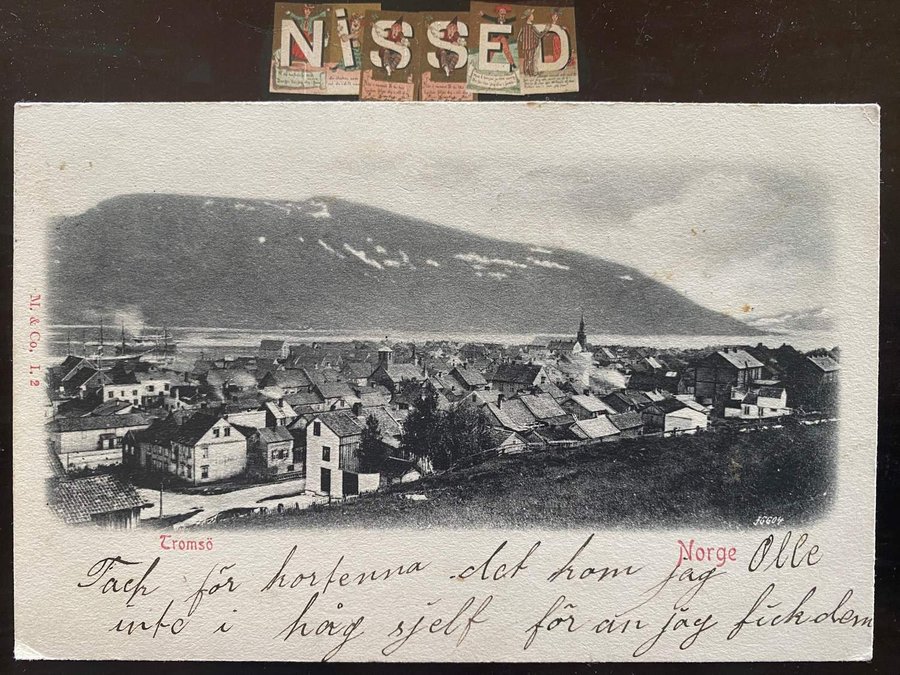 NiSSED
M. & Co. I. 2
36604
Tromsö
Norge
Tack för kortenna det kom jag Olle
inte i håg sjelf för än jag fick dem